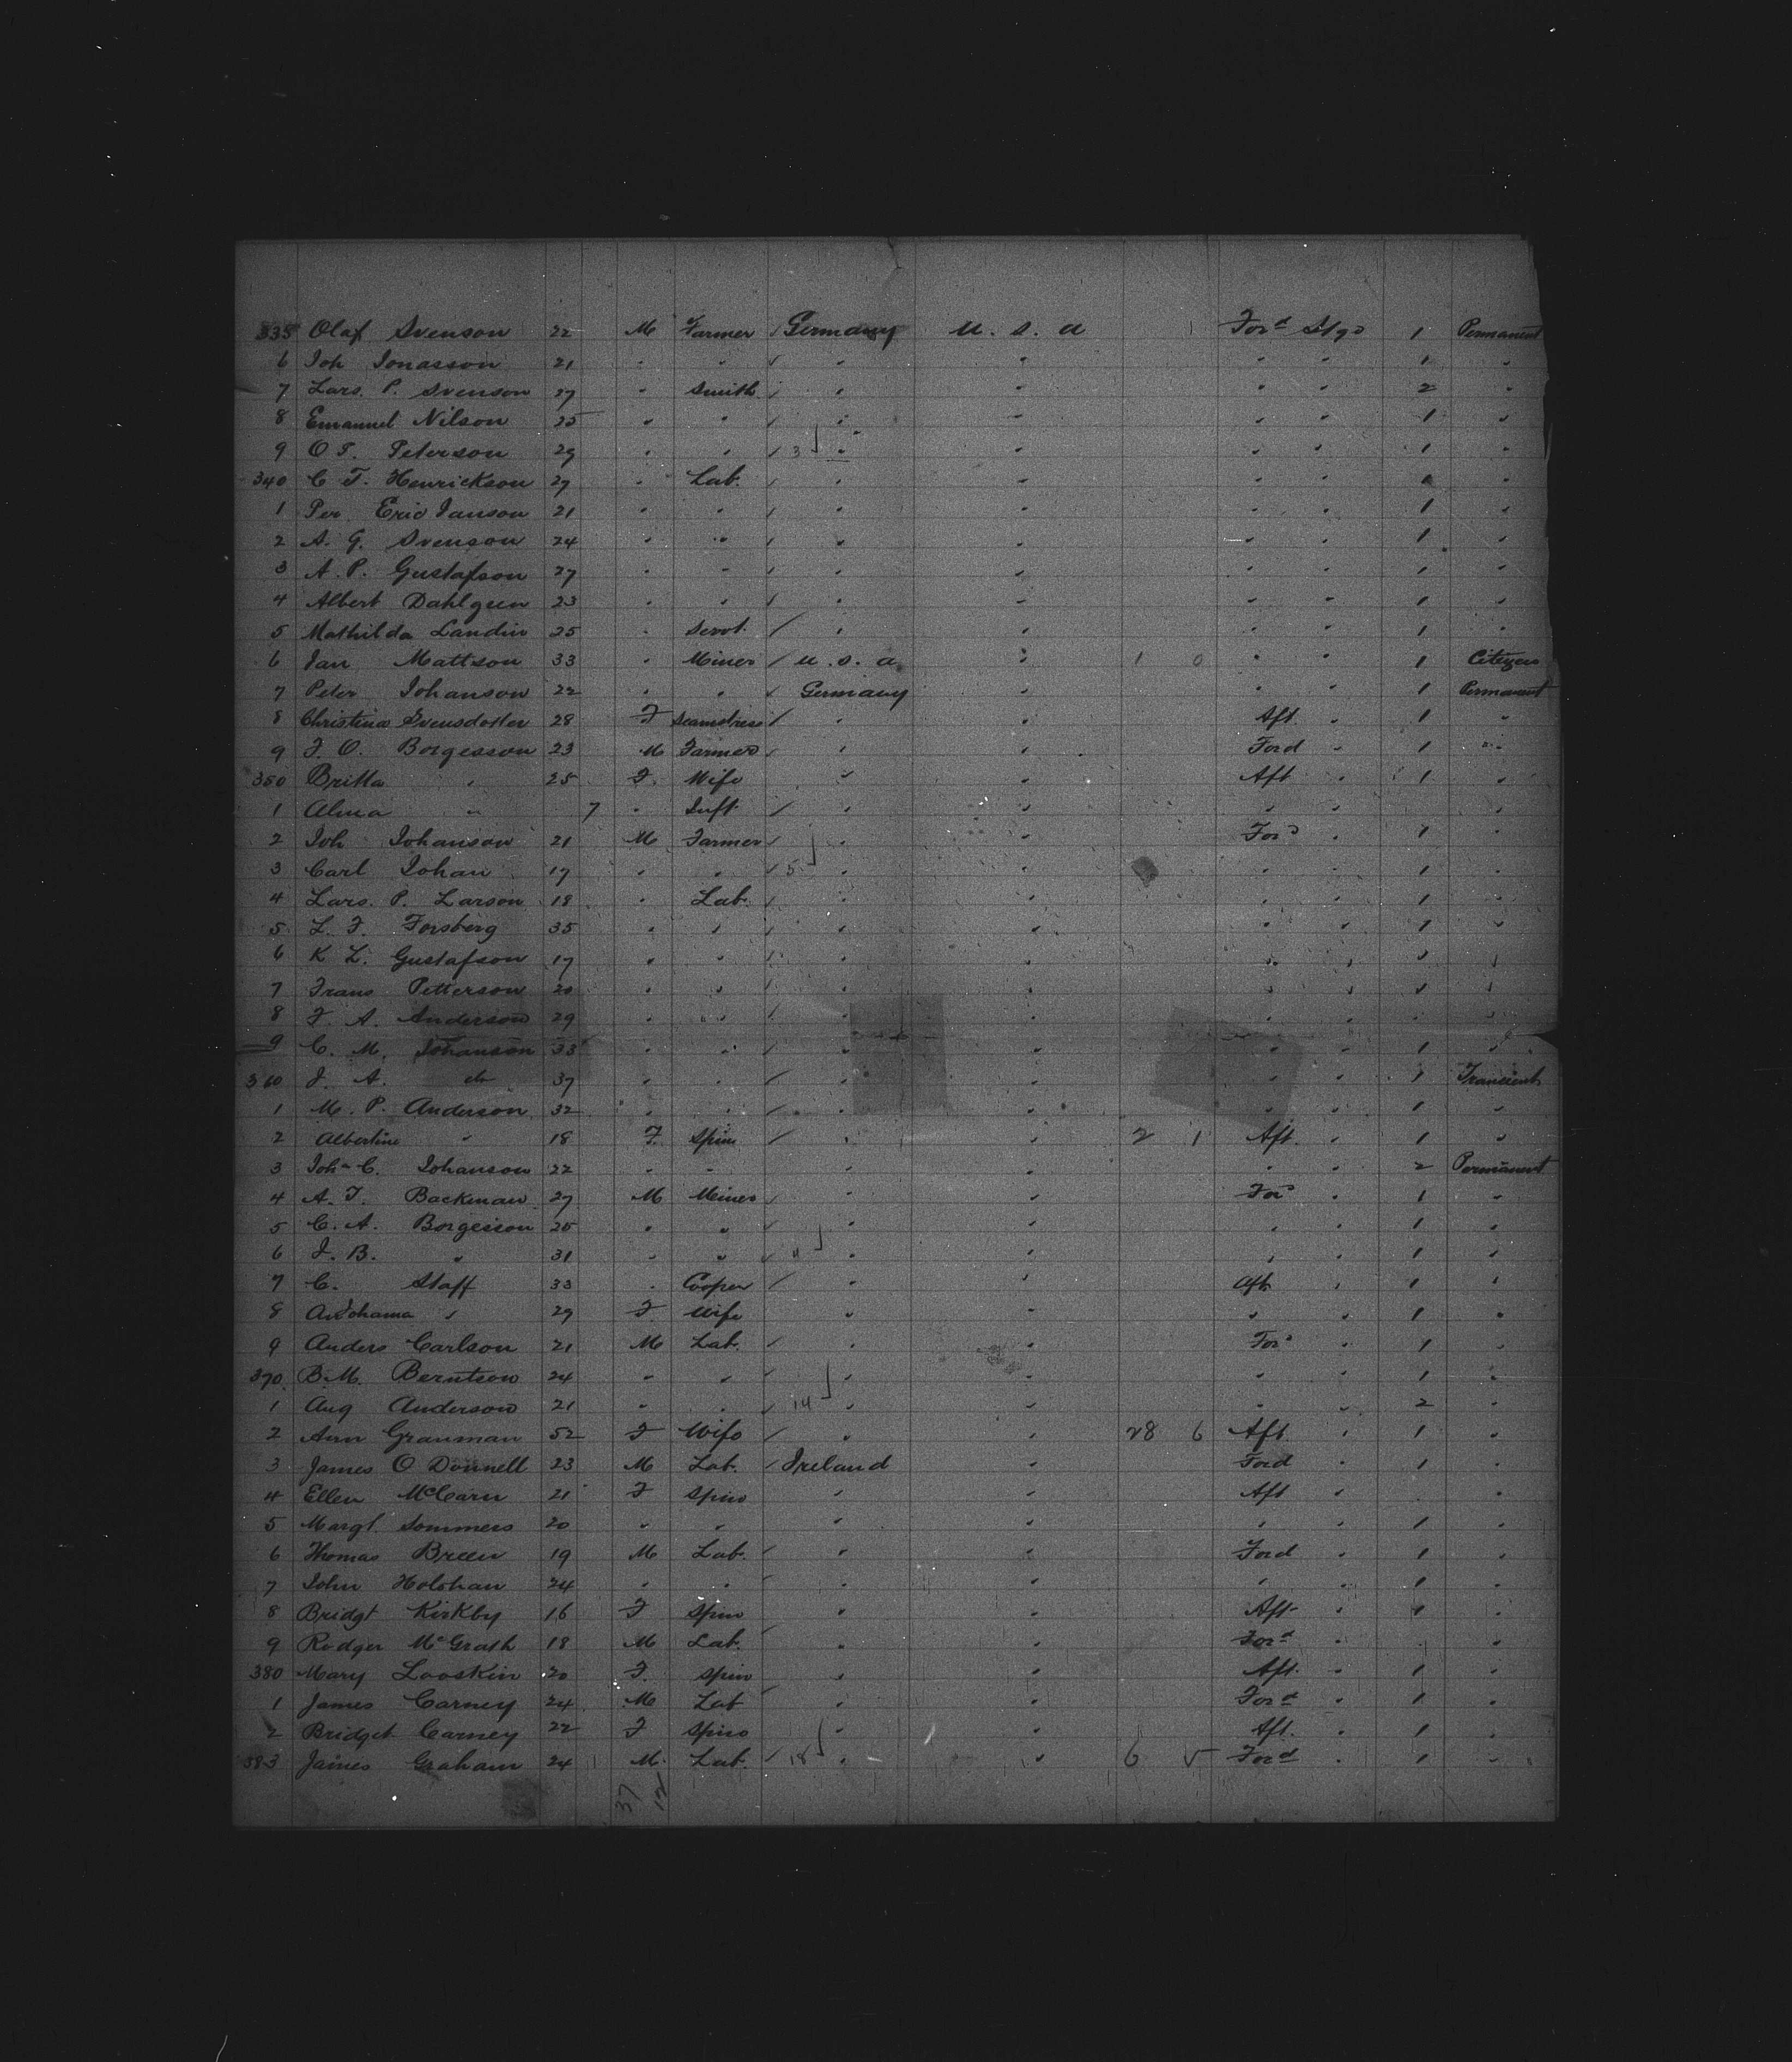 335 Olaf Svenson 22 M Farmer Germany U. S. A Ford Stge 1 Permanent
6 Joh Jonasson 21 " " " " " " 1 "
7 Lars. P. Svenson 27 " Smith " " " " 2 "
8 Emanuel Nilson 25 " " " " " " 1 "
9 O T. Peterson 29 " " 3 " " " " 1 "
340 C T. Henrickson 27 " Lab. " " " " "
1 Per Eric Janson 21 " " " " " " 1 "
2 A. G. Svenson 24 " " " " " " 1 "
3 A. P. Gustafson 27 " " " " " " 1 "
4 Albert Dahlgren 23 " " " " " " 1 "
5 Mathilda Landin 25 " Servt. " " " " 1 "
6 Jan Mattson 33 " Miner U. S. A " 1 0 " " 1 Citizen
7 Peter Johanson 22 " " Germany " " " 1 Permanent
8 Christina Svensdotter 28 F Seamstress " " Aft " 1 "
9 J. O. Borgesson 23 M Farmer " " Ford " 1 "
350 Britta " 25 F. Wife " " Aft " 1 "
1 Alma " 7 " Inft. " " " " "
2 Joh Johanson 21 M Farmer " " For'd " 1 "
3 Carl Johan 17 " " 5 " " " " 1 "
4 Lars. P. Larson 18 " Lab. " " " " 1 "
5 L. F. Forsberg 35 " " " " " " 1 "
6 K L. Gustafson 17 " " " " " " " "
7 Frans Petterson 20 " " " " " " " "
8 F. A. Anderson 29 " " " " " " "
9 C. M. Johanson 33 " " " " " " 1 "
360 J. A. do 37 " " " " " " 1 Transient
1 M. P. Anderson 32 " " " " " " 1 "
2 Albertine " 18 F. Spin " " 2 1 Aft. " 1 "
3 Joh C. Johanson 22 " " " " " " 2 Permanent
4 A. T. Backman 27 M Miner " " For'd " 1 "
5 C. A. Borgesson 25 " " " " " " 1 "
6 J. B. " 31 " " 11 " " " " 1 "
7 C. Staff 33 " Cooper " " Aft " 1 "
8 " 29 F Wife " " " " 1 "
9 Anders Carlson 21 M Lab. " " For'd " 1 "
370 B. M. Berntson 24 " " " " " " 1 "
1 Aug Anderson 21 " " 14 " " " " 2 "
2 Ann Grauman 52 F Wife " " 28 6 Aft " 1 "
3 James O Donnell 23 M Lab. Ireland " Ford " 1 "
4 Ellen McCarn 21 F Spin " " Aft " "
5 Margt. Sommers 20 " " " " " " 1 "
6 Thomas Breen 19 M Lab. " " Ford " 1 "
7 John Holohan 24 " " " " " " 1 "
8 Bridgt Kirkby 16 F Spin " " Aft " 1 "
9 Rodger McGrath 18 M Lab. " " Ford " "
380 Mary Looskin 20 F. Spin " " Aft. " 1 "
1 James Carney 24 M Lab " " Ford " 1 "
2 Bridget Carney 22 F Spin " " Aft. " 1 "
383 James Graham 24 M. Lab. 18 " " 6 5 Ford " 1 "
37 12